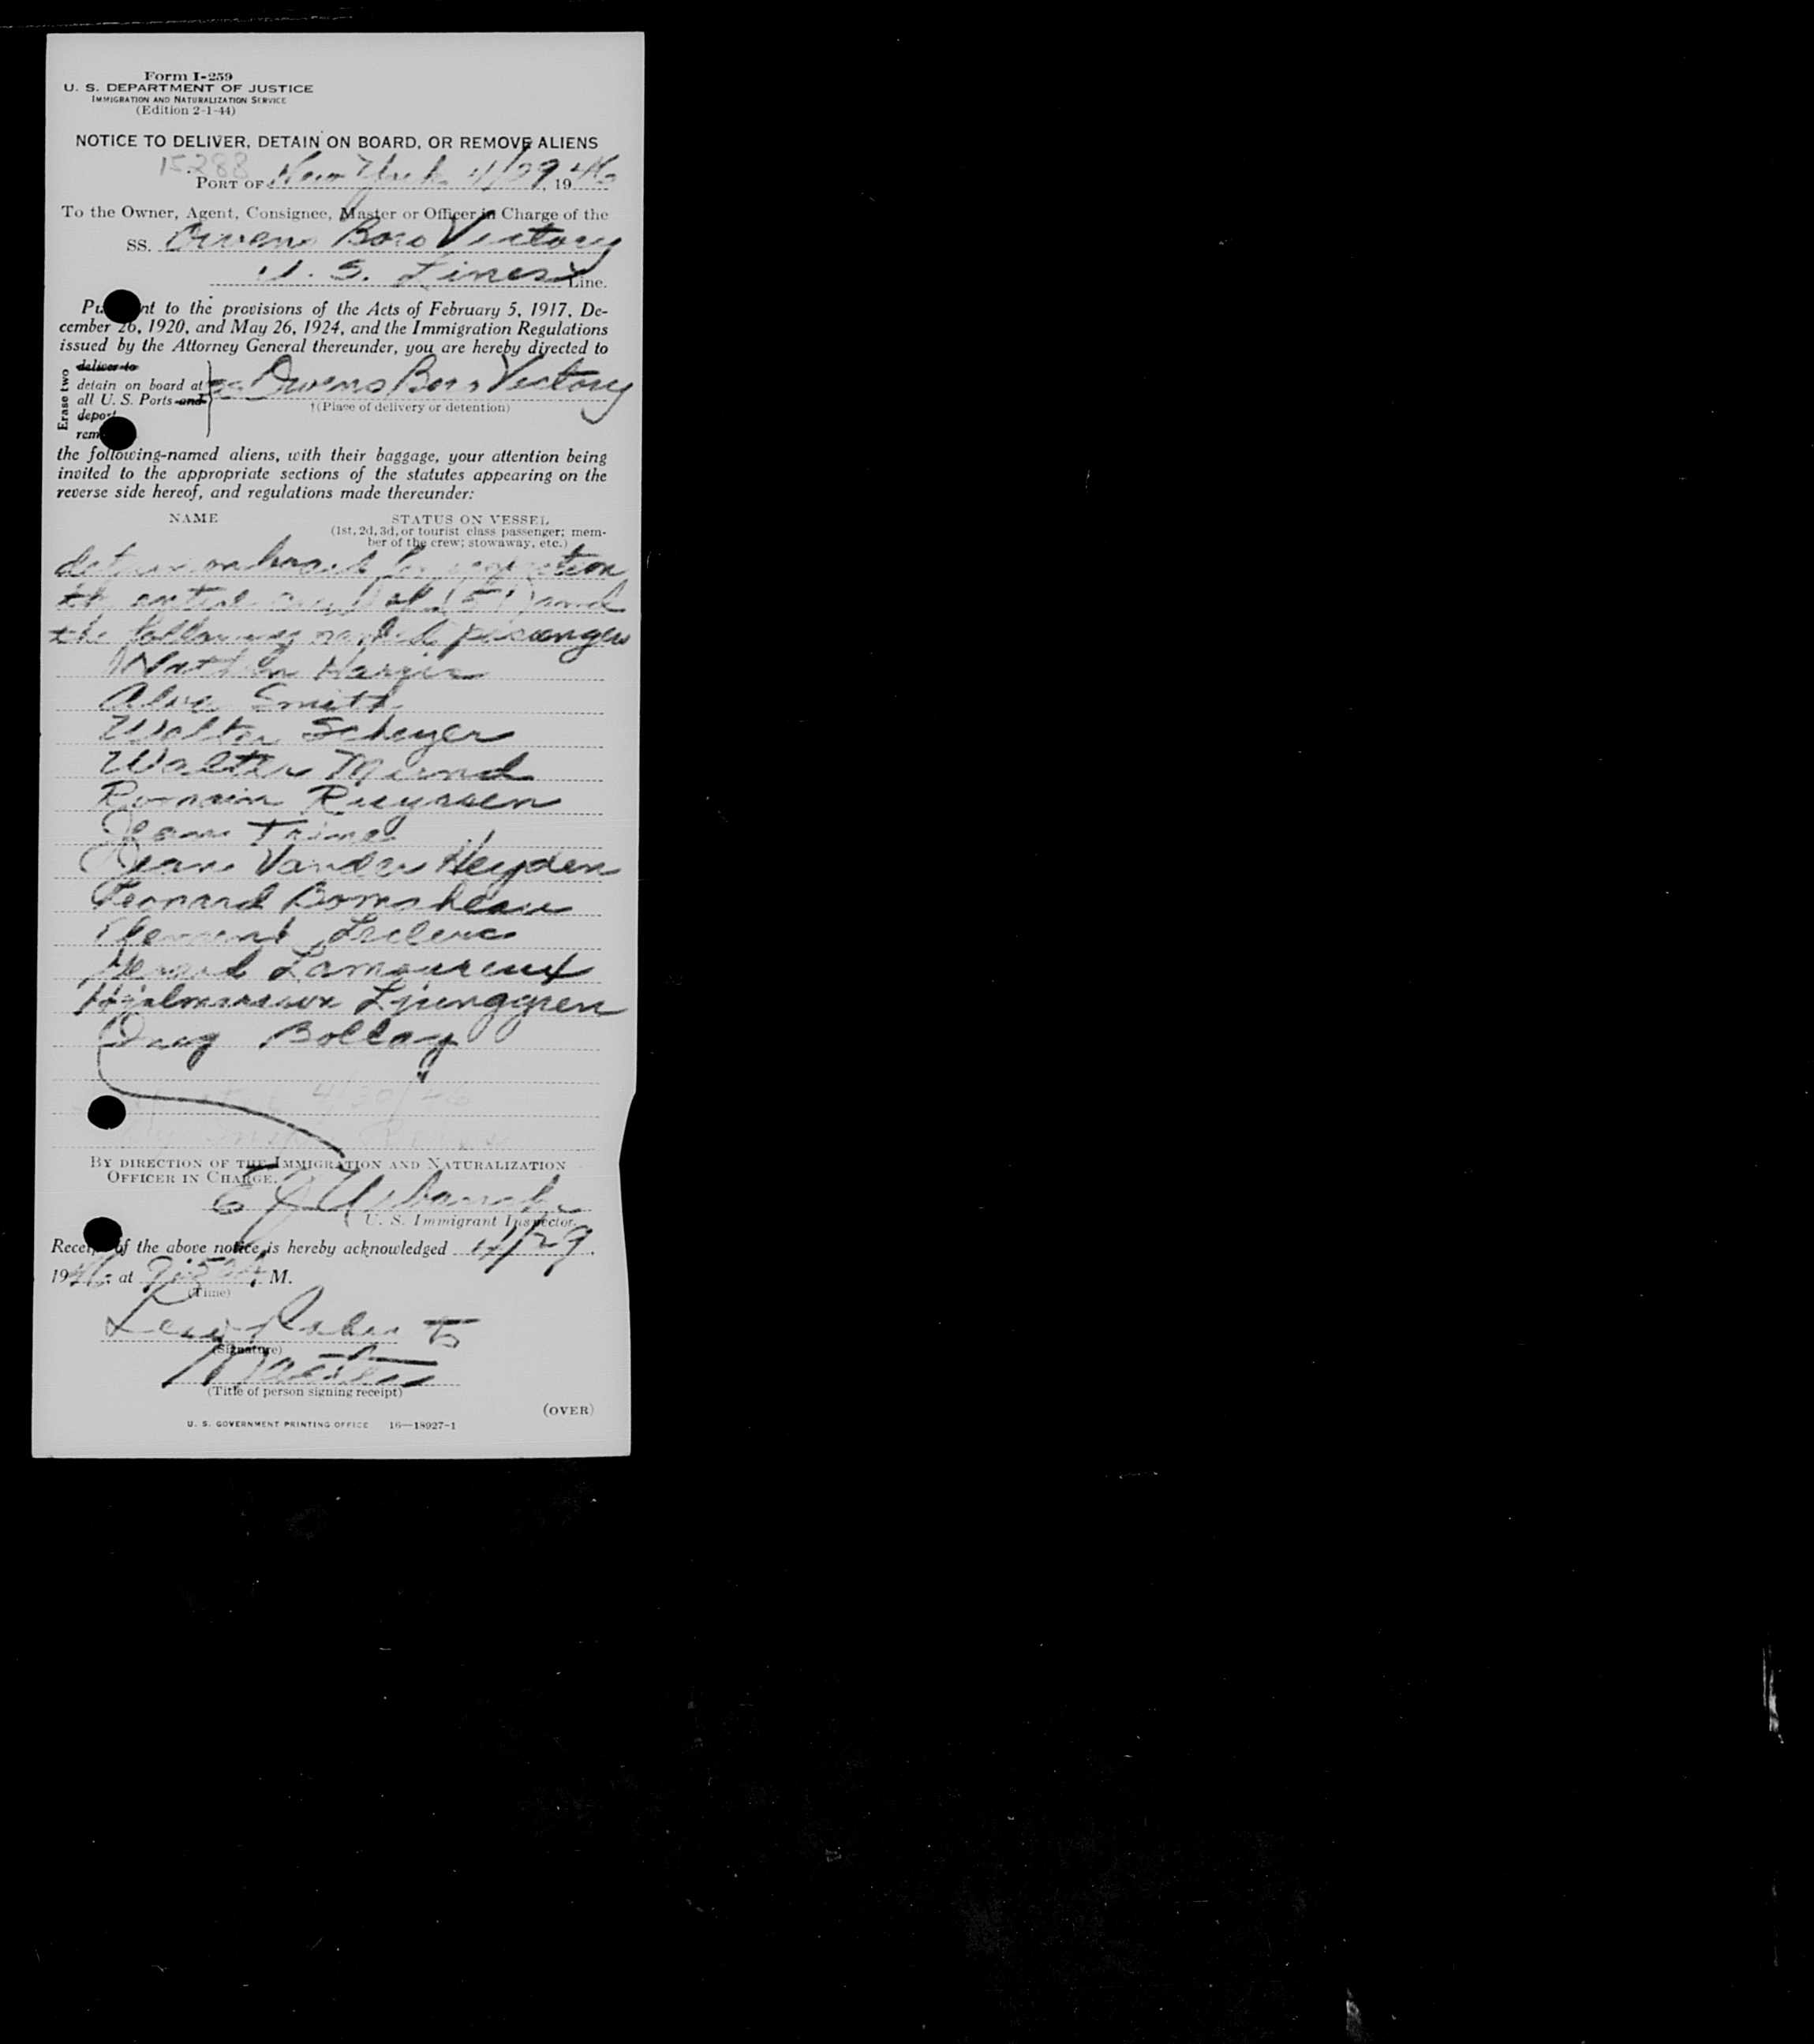 Form I-259
U. S. DEPARTMENT OF JUSTICE
IMMIGRATION AND NATURALIZATION SERVICE
(Edition 2-1-44)
NOTICE TO DELIVER, DETAIN ON BOARD, OR REMOVE ALIENS
15288
PORT OF New York 4/29, 1946
To the Owner, Agent, Consignee, Master or Officer in Charge of the
SS. Owens Boro Victory
U. S. Lines Line.
nt to the provisions of the Acts of February 5, 1917, De-
cember 26, 1920, and May 26, 1924, and the Immigration Regulations
issued by the Attorney General thereunder, you are hereby directed to
Erase two
deliver to
detain on board at
all U. S. Ports and
deport
rem
SS Owens Boro Victory
†(Place of delivery or detention)
the following-named aliens, with their baggage, your attention being
invited to the appropriate sections of the statutes appearing on the
reverse side hereof, and regulations made thereunder:
NAME
STATUS ON VESSEL
(1st, 2d, 3d, or tourist class passenger; mem-
ber of the crew; stowaway, etc.)
detain on board for
the entire crew of (51) and
the following named passengers
Nathan
Smith
Walter Scheyer
Walter
Romain Ruyssen
Jean
Jean Vander Heyden
Leonard
Leclerc
Lamoureux
Ljunggren
Bollag
4/30/46
BY DIRECTION OF THE IMMIGRATION AND NATURALIZATION
OFFICER IN CHARGE.
E J
U. S. Immigrant Inspector.
Receipt of the above notice is hereby acknowledged 4/29,
1946, at M.
(Time)
(Signature)
Master
(Title of person signing receipt)
(OVER)
U. S. GOVERNMENT PRINTING OFFICE 16—18927-1